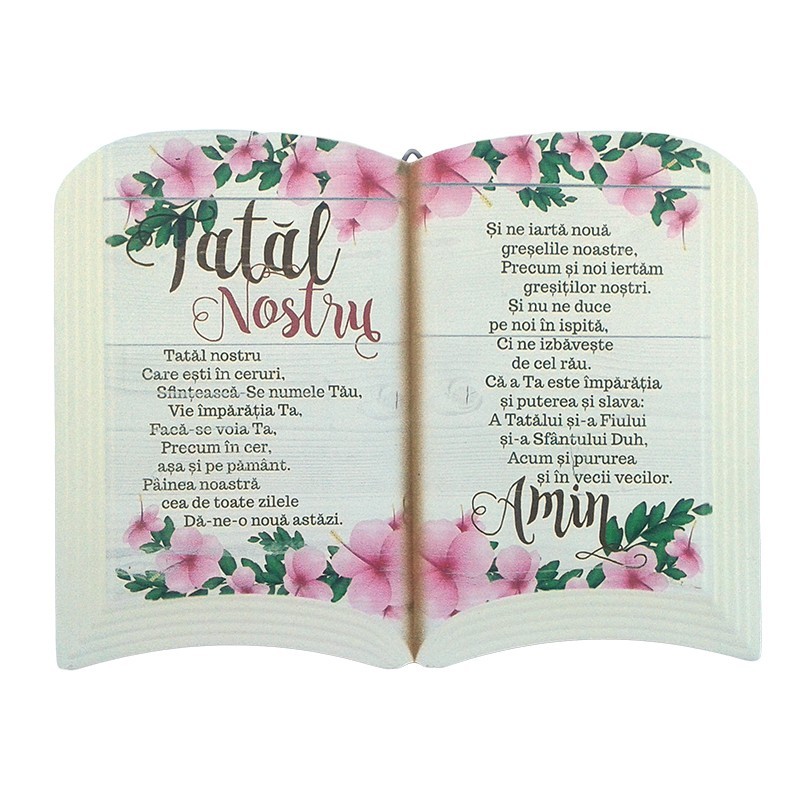 Tatăl
Nostru
Tatăl nostru
Care ești în ceruri,
Sfințească-Se numele Tău,
Vie împărăția Ta,
Facă-se voia Ta,
Precum în cer,
așa și pe pământ.
Pâinea noastră
cea de toate zilele
Dă-ne-o nouă astăzi.
Și ne iartă nouă
greșelile noastre,
Precum și noi iertăm
greșiților noștri.
Și nu ne duce
pe noi în ispită,
Ci ne izbăvește
de cel rău.
Că a Ta este împărăția
și puterea și slava:
A Tatălui și-a Fiului
și-a Sfântului Duh,
Acum și pururea
și în vecii vecilor.
Amin